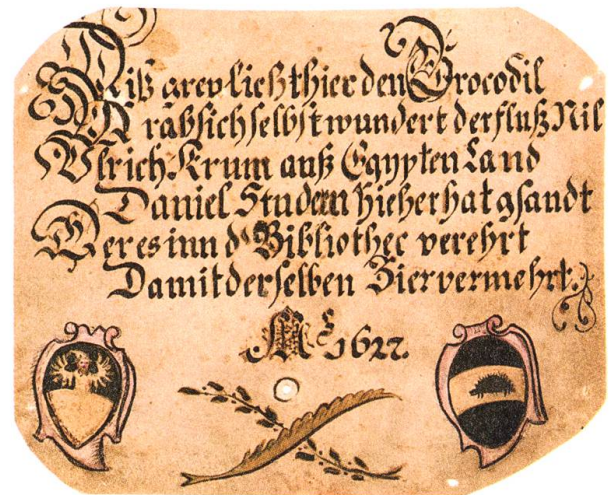 Diß greulichß thier den Crocodil
Drab sich selbst wundert der fluß Nil
Ulrich Krum auß Egypten Land
Daniel Studern hieher hat gsandt
Der es inn d' Bibliothec verehrt
Damit derselben Zier vermehrt.
Aº 1627.